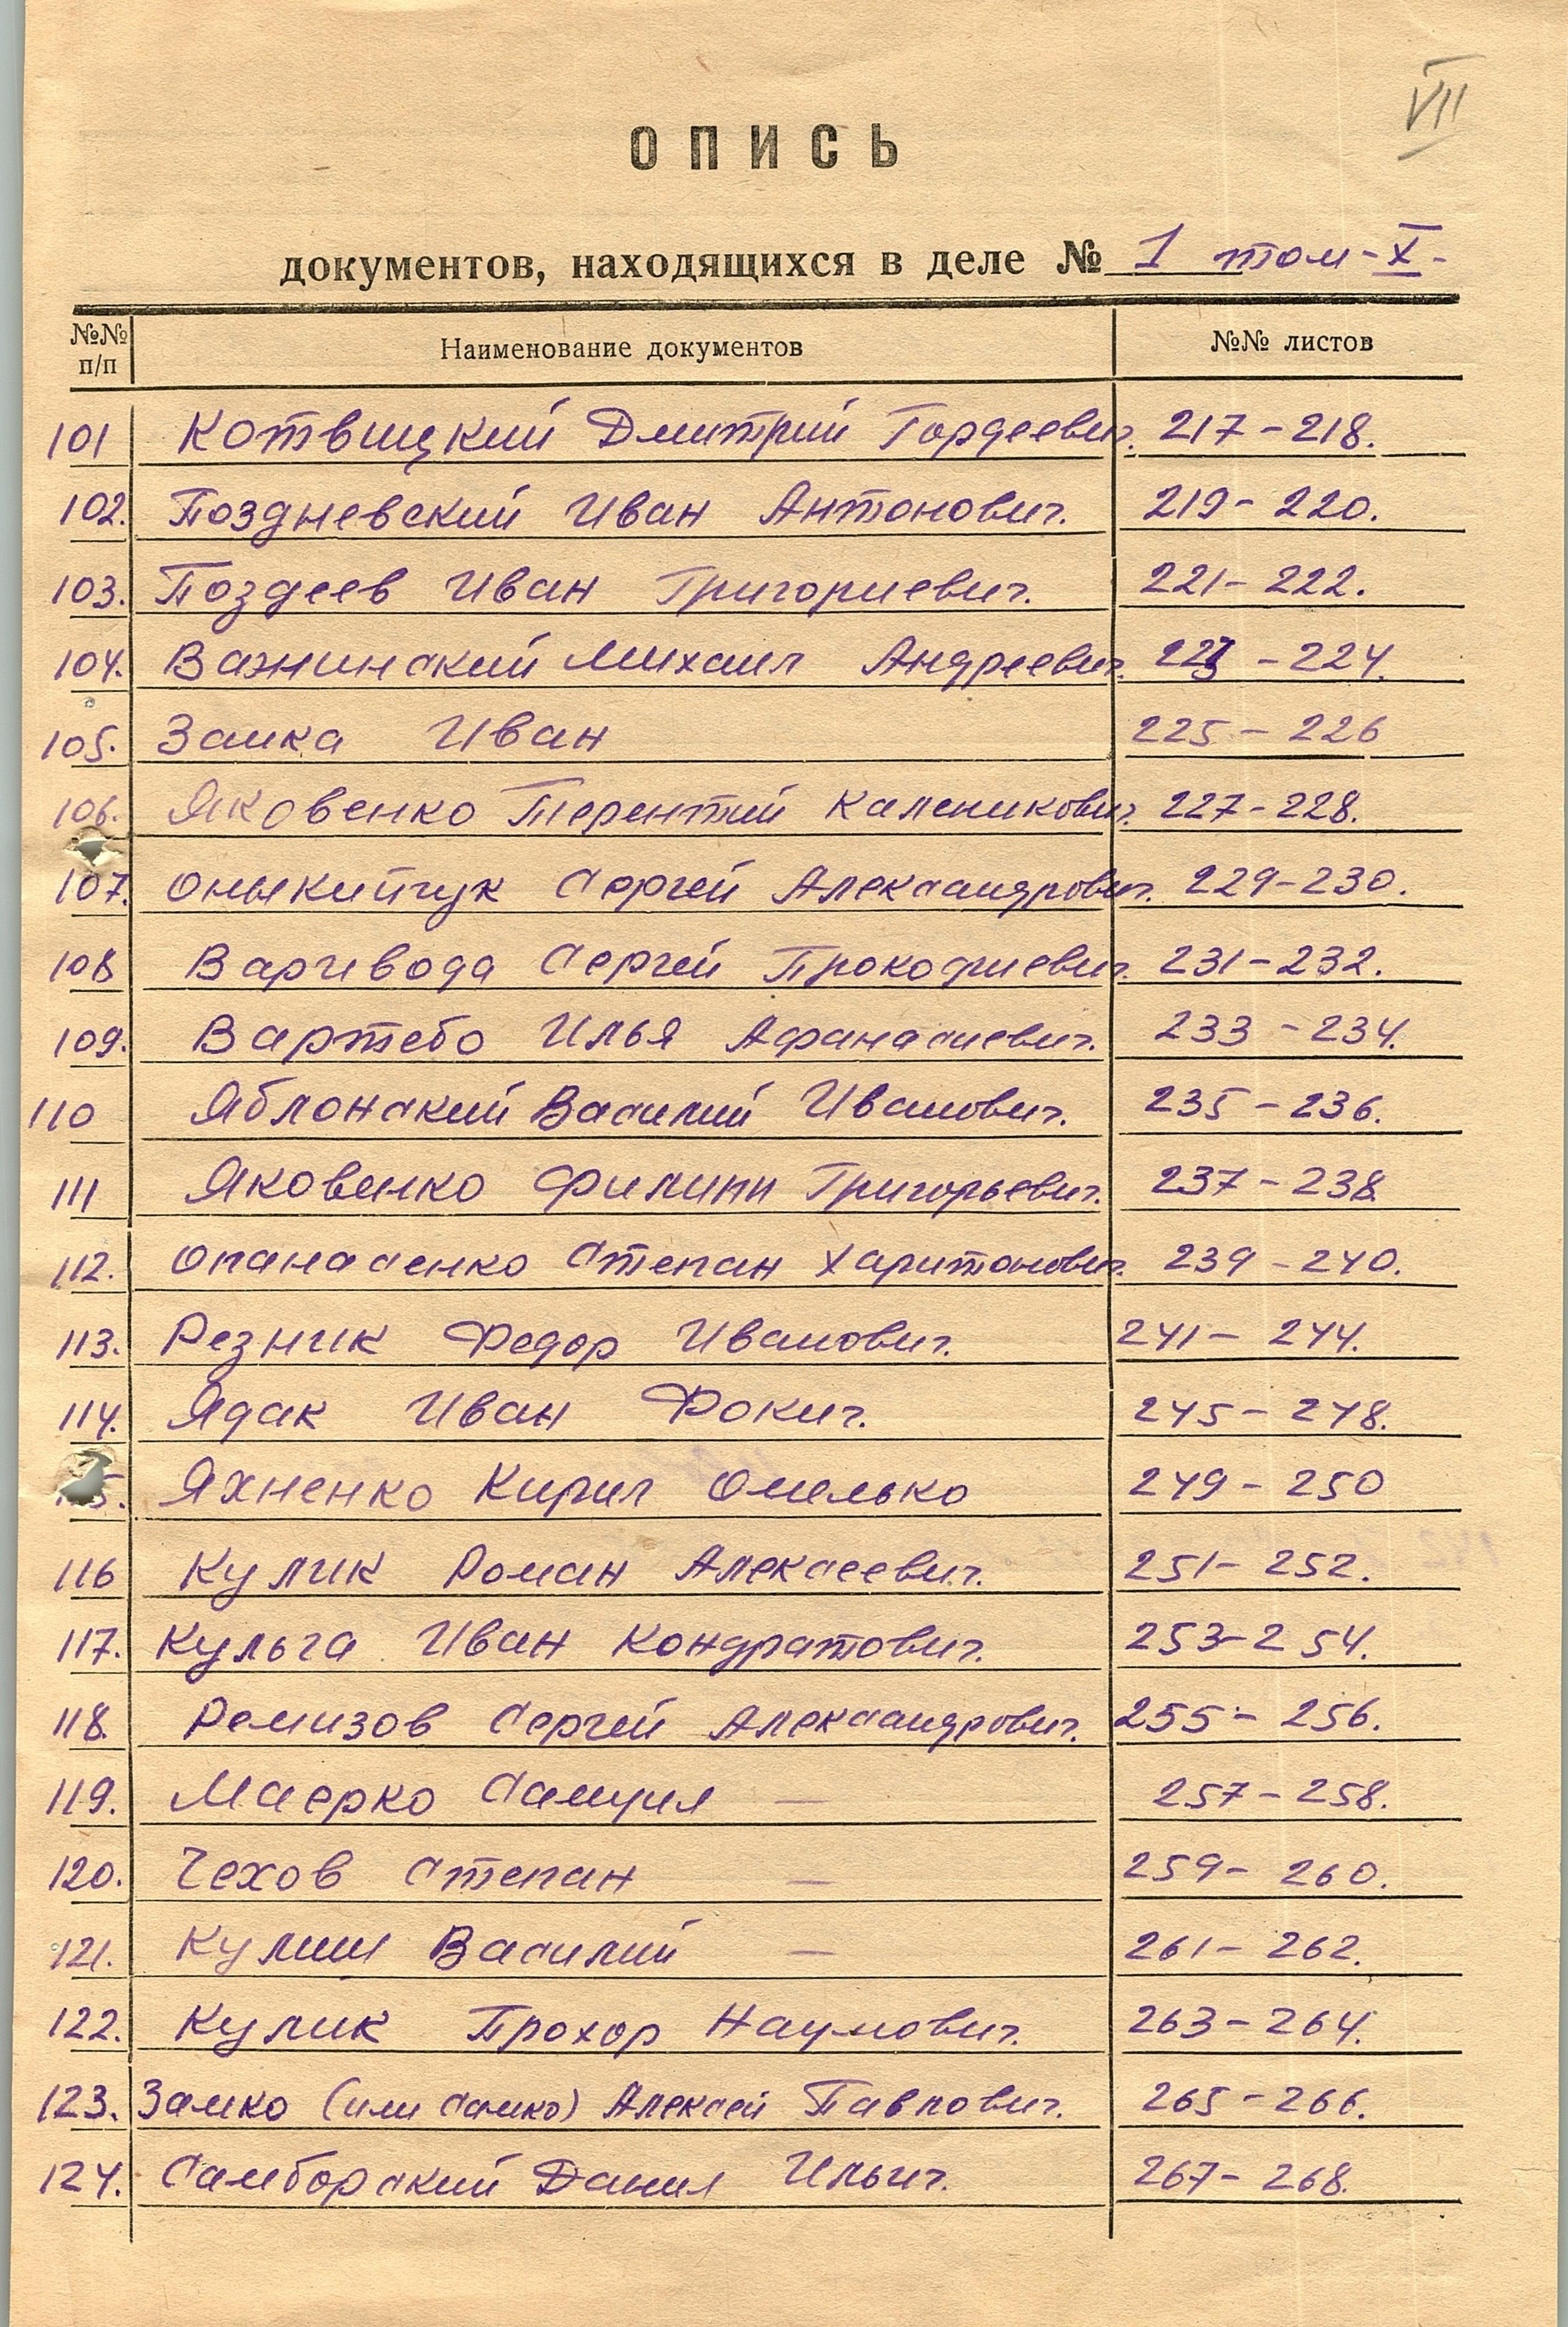 VII
ОПИСЬ
документов, находящихся в деле № 1 том-X-
№№ п/п Наименование документов №№ листов
101 Котвицкий Дмитрий Гордеевич. 217-218.
102. Поздневский Иван Антонович. 219-220.
103. Поздеев Иван Григориевич. 221-222.
104. Важинский Михаил Андреевич. 223-224.
105. Заика Иван 225-226
106. Яковенко Терентий Каленикович. 227-228.
107. Оныкийчук Сергей Александрович. 229-230.
108 Варивода Сергей Прокофиевич. 231-232.
109. Вартебо Илья Афанасиевич. 233-234.
110 Яблонский Василий Иванович. 235-236.
111 Яковенко Филипп Григорьевич. 237-238
112. Опанасенко Степан Харитонович. 239-240.
113. Резник Федор Иванович. 241-244.
114. Ядак Иван Фокич. 245-248.
5. Яхненко Кирил Омелько 249-250
116 Кулик Роман Алексеевич. 251-252.
117. Кульга Иван Кондратович. 253-254.
118. Ремизов Сергей Александрович. 255-256.
119. Маерко Самуил — 257-258.
120. Чехов Степан — 259-260.
121. Кулиш Василий — 261-262.
122. Кулик Прохор Наумович. 263-264.
123. Замко (или Самко) Алексей Павлович. 265-266.
124. Самборский Данил Ильич. 267-268.